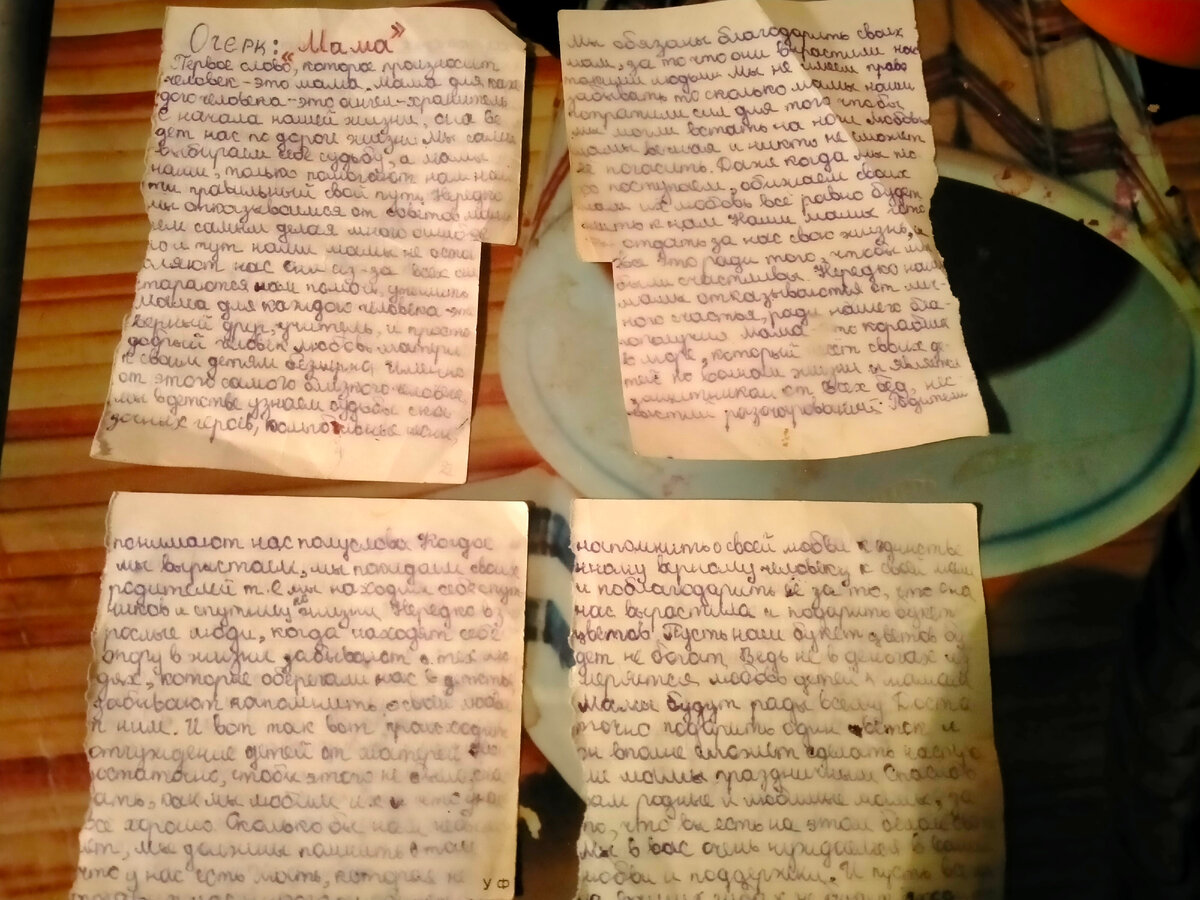 Очерк: "Мама"
Первое слово, которое произносит
человек - это мама. Мама для каж
дого человека - это ангел-хранитель
С начала нашей жизни, она ве
дет нас по дороге жизни. Мы сами
выбираем себе судьбу, а мамы
наши, только помогают нам най
ти правильный свой путь. Нередко
мы отказываемся от советов мамы
тем самым делая много ошибок
но и тут наши мамы не оста
вляют нас они из-за всех сил
стараются нам помочь,
Мама для каждого человека - это
верный друг, учитель, и просто
добрый человек любовь матери
к своим детям безмерна. Именно
от этого самого близкого человека
мы в детстве узнаем судьбы ска
зочных героев,
мы обязаны благодарить своих
мам, за то что они вырастили нас
такими людьми. Мы не имеем право
забывать то сколько мамы наши
потратили сил для того чтобы
мы могли встать на ноги любовь
мамы вечная и никто не сможет
её погасить. Даже когда мы пло
хо поступаем, обижаем своих
мам их любовь всё равно будет
жить к нам. Наши мамы
отдать за нас свою жизнь, и
всё это ради того, чтобы мы
были счастливы. Нередко наши
мамы отказываются от лич-
ного счастья, ради нашего бла-
гополучия мама это корабль
в море, который своих де
тей по волнам жизни и является
защитником от всех бед, нес
частий разочарований. Родители
понимают нас полуслова. Когда
мы вырастаем, мы покидаем своих
родителей т.е мы находим себе спут
ников и спутниц в жизни. Нередко вз
рослые люди, когда находят себе
опору в жизни забывают о тех лю
дях, которые оберегали нас в детстве
забывают напомнить о своей любви
к ним. И вот так вот происходит
отчуждение детей от матерей
остаточно, чтобы этого не
ать, как мы любим их и что у нас
все хорошо. Сколько бы нам не было
лет, мы должны помнить о том
что у нас есть мать, которая не
УФ
напомнить о своей любви к единстве
нному верному человеку к своей маме
и поблагодарить её за то, что она
нас вырастила и подарить букет
цветов. Пусть наш букет цветов бу
дет не богат. Ведь не в деньгах из
меряется любовь детей к мамам
Мамы будут рады всему. Доста
точно подарить один цветок и
он вполне сможет сделать
мамы праздничным. Спасибо
вам родные и любимые мамы, за
то, что вы есть на этом белом
Мы в вас очень нуждаемся в вашей
любви и поддержки. И пусть